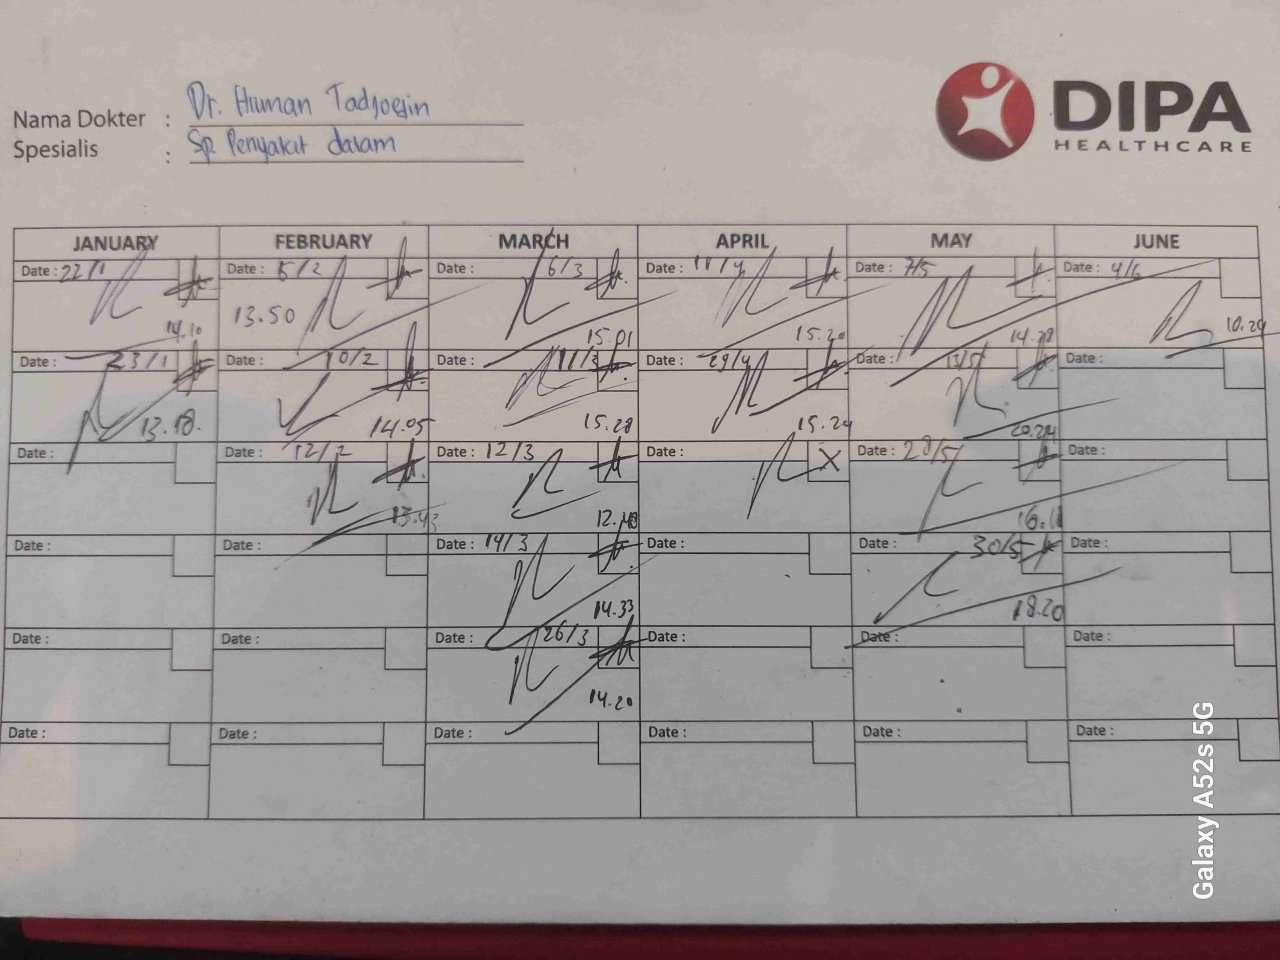 Nama Dokter : Dr. Hiuman Tadjoedin
Spesialis : Sp. Penyakit dalam
DIPA
HEALTHCARE
JANUARY FEBRUARY MARCH APRIL MAY JUNE
Date : 22/1 Date : 5/2 Date : 6/3 Date : 11/4 Date : 7/5 Date : 4/6
14.10 13.50 15.01 15.20 14.28 10.24
Date : 23/1 Date : 10/2 Date : 11/3 Date : 29/4 Date : 13/5 Date :
13.18. 14.05 15.28 15.24 20.24
Date : Date : 12/2 Date : 12/3 Date : X Date : 28/5 Date :
13.43 12.40 16.11
Date : Date : Date : 14/3 Date : Date : 30/5 Date :
14.33 18.20
Date : Date : Date : 26/3 Date : Date : Date :
14.20
Date : Date : Date : Date : Date : Date :
Galaxy A52s 5G